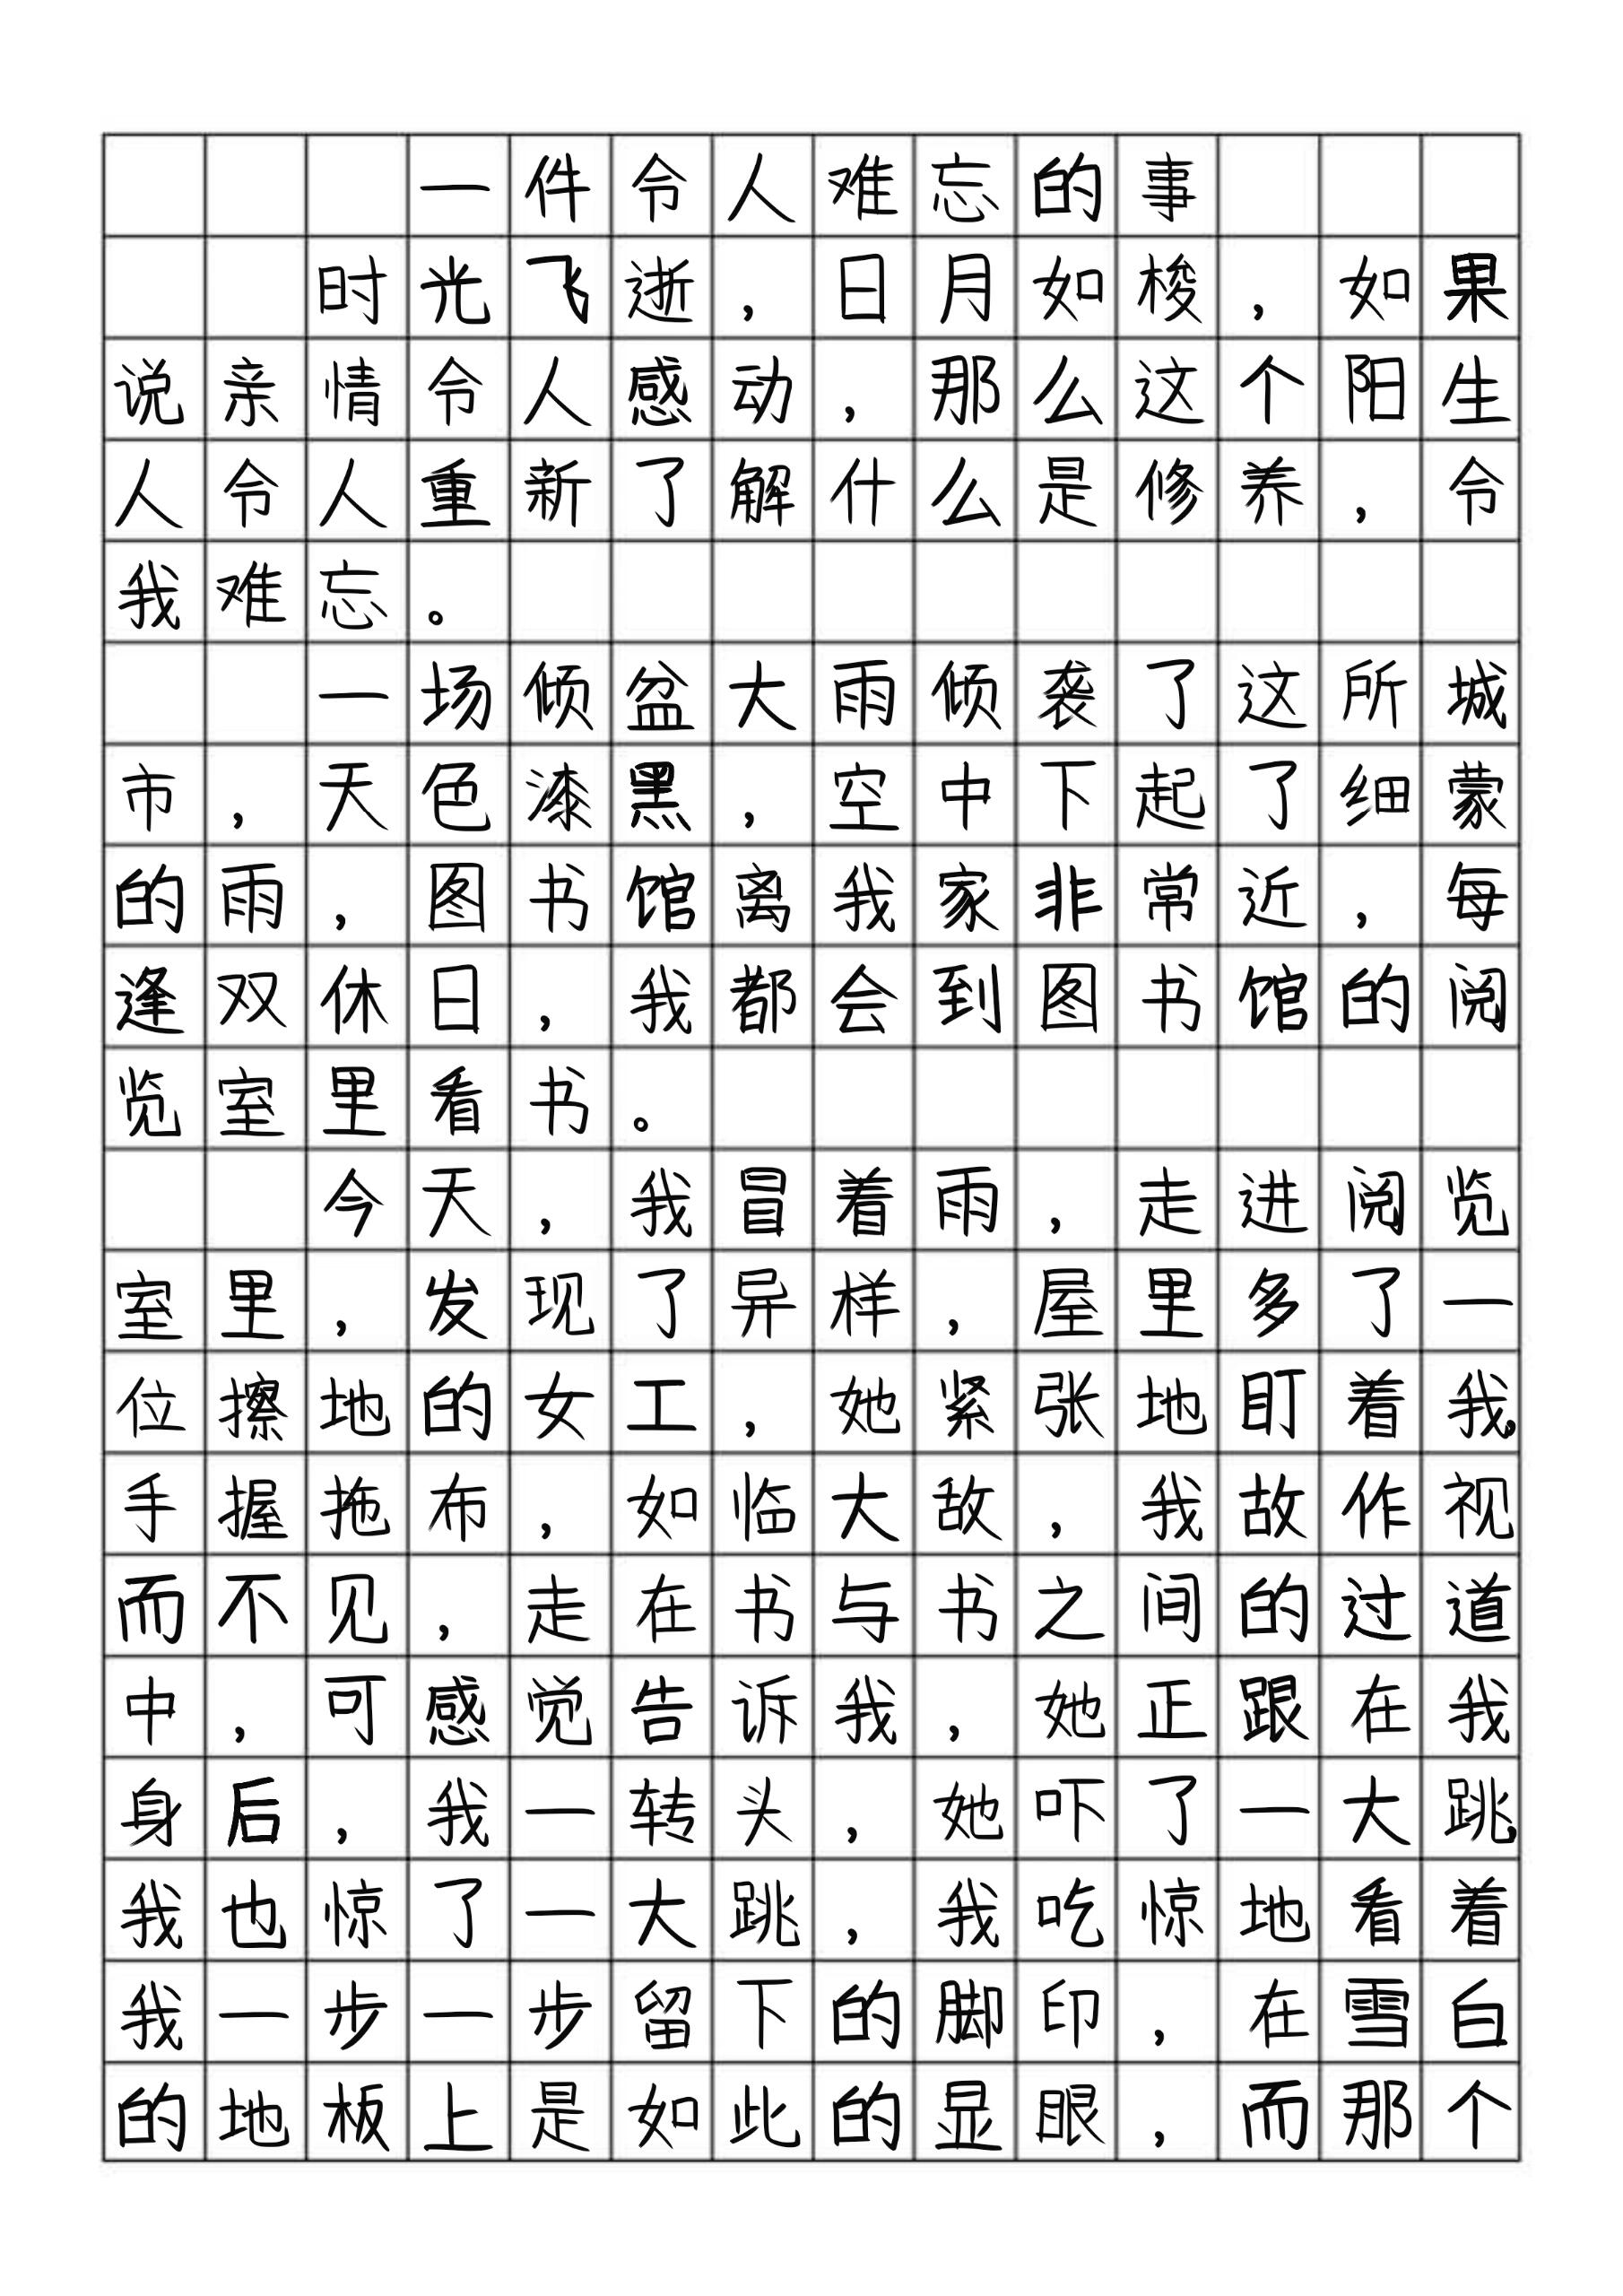 一件令人难忘的事
时光飞逝，日月如梭，如果
说亲情令人感动，那么这个阳生
人令人重新了解什么是修养，令
我难忘。
一场倾盆大雨倾袭了这所城
市，天色漆黑，空中下起了细蒙
的雨，图书馆离我家非常近，每
逢双休日，我都会到图书馆的阅
览室里看书。
今天，我冒着雨，走进阅览
室里，发现了异样，屋里多了一
位擦地的女工，她紧张地盯着我，
手握拖布，如临大故，我故作视
而不见，走在书与书之间的过道
中，可感觉告诉我，她正跟在我
身后，我一转头，她吓了一大跳，
我也惊了一大跳，我吃惊地看着
我一步一步留下的脚印，在雪白
的地板上是如此的显眼，而那个